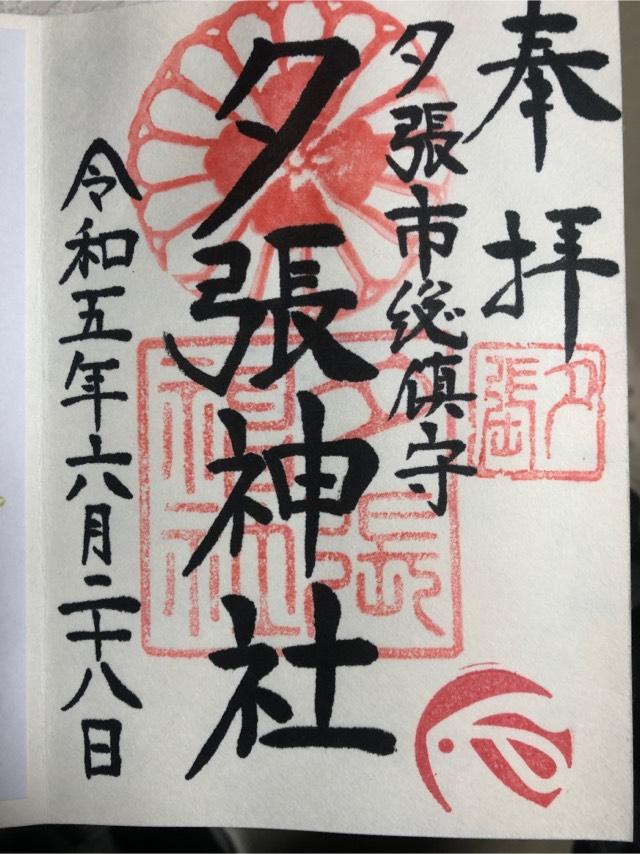 奉拝
夕張市総鎮守
夕張神社
令和五年六月二十八日
夕張
夕張神社